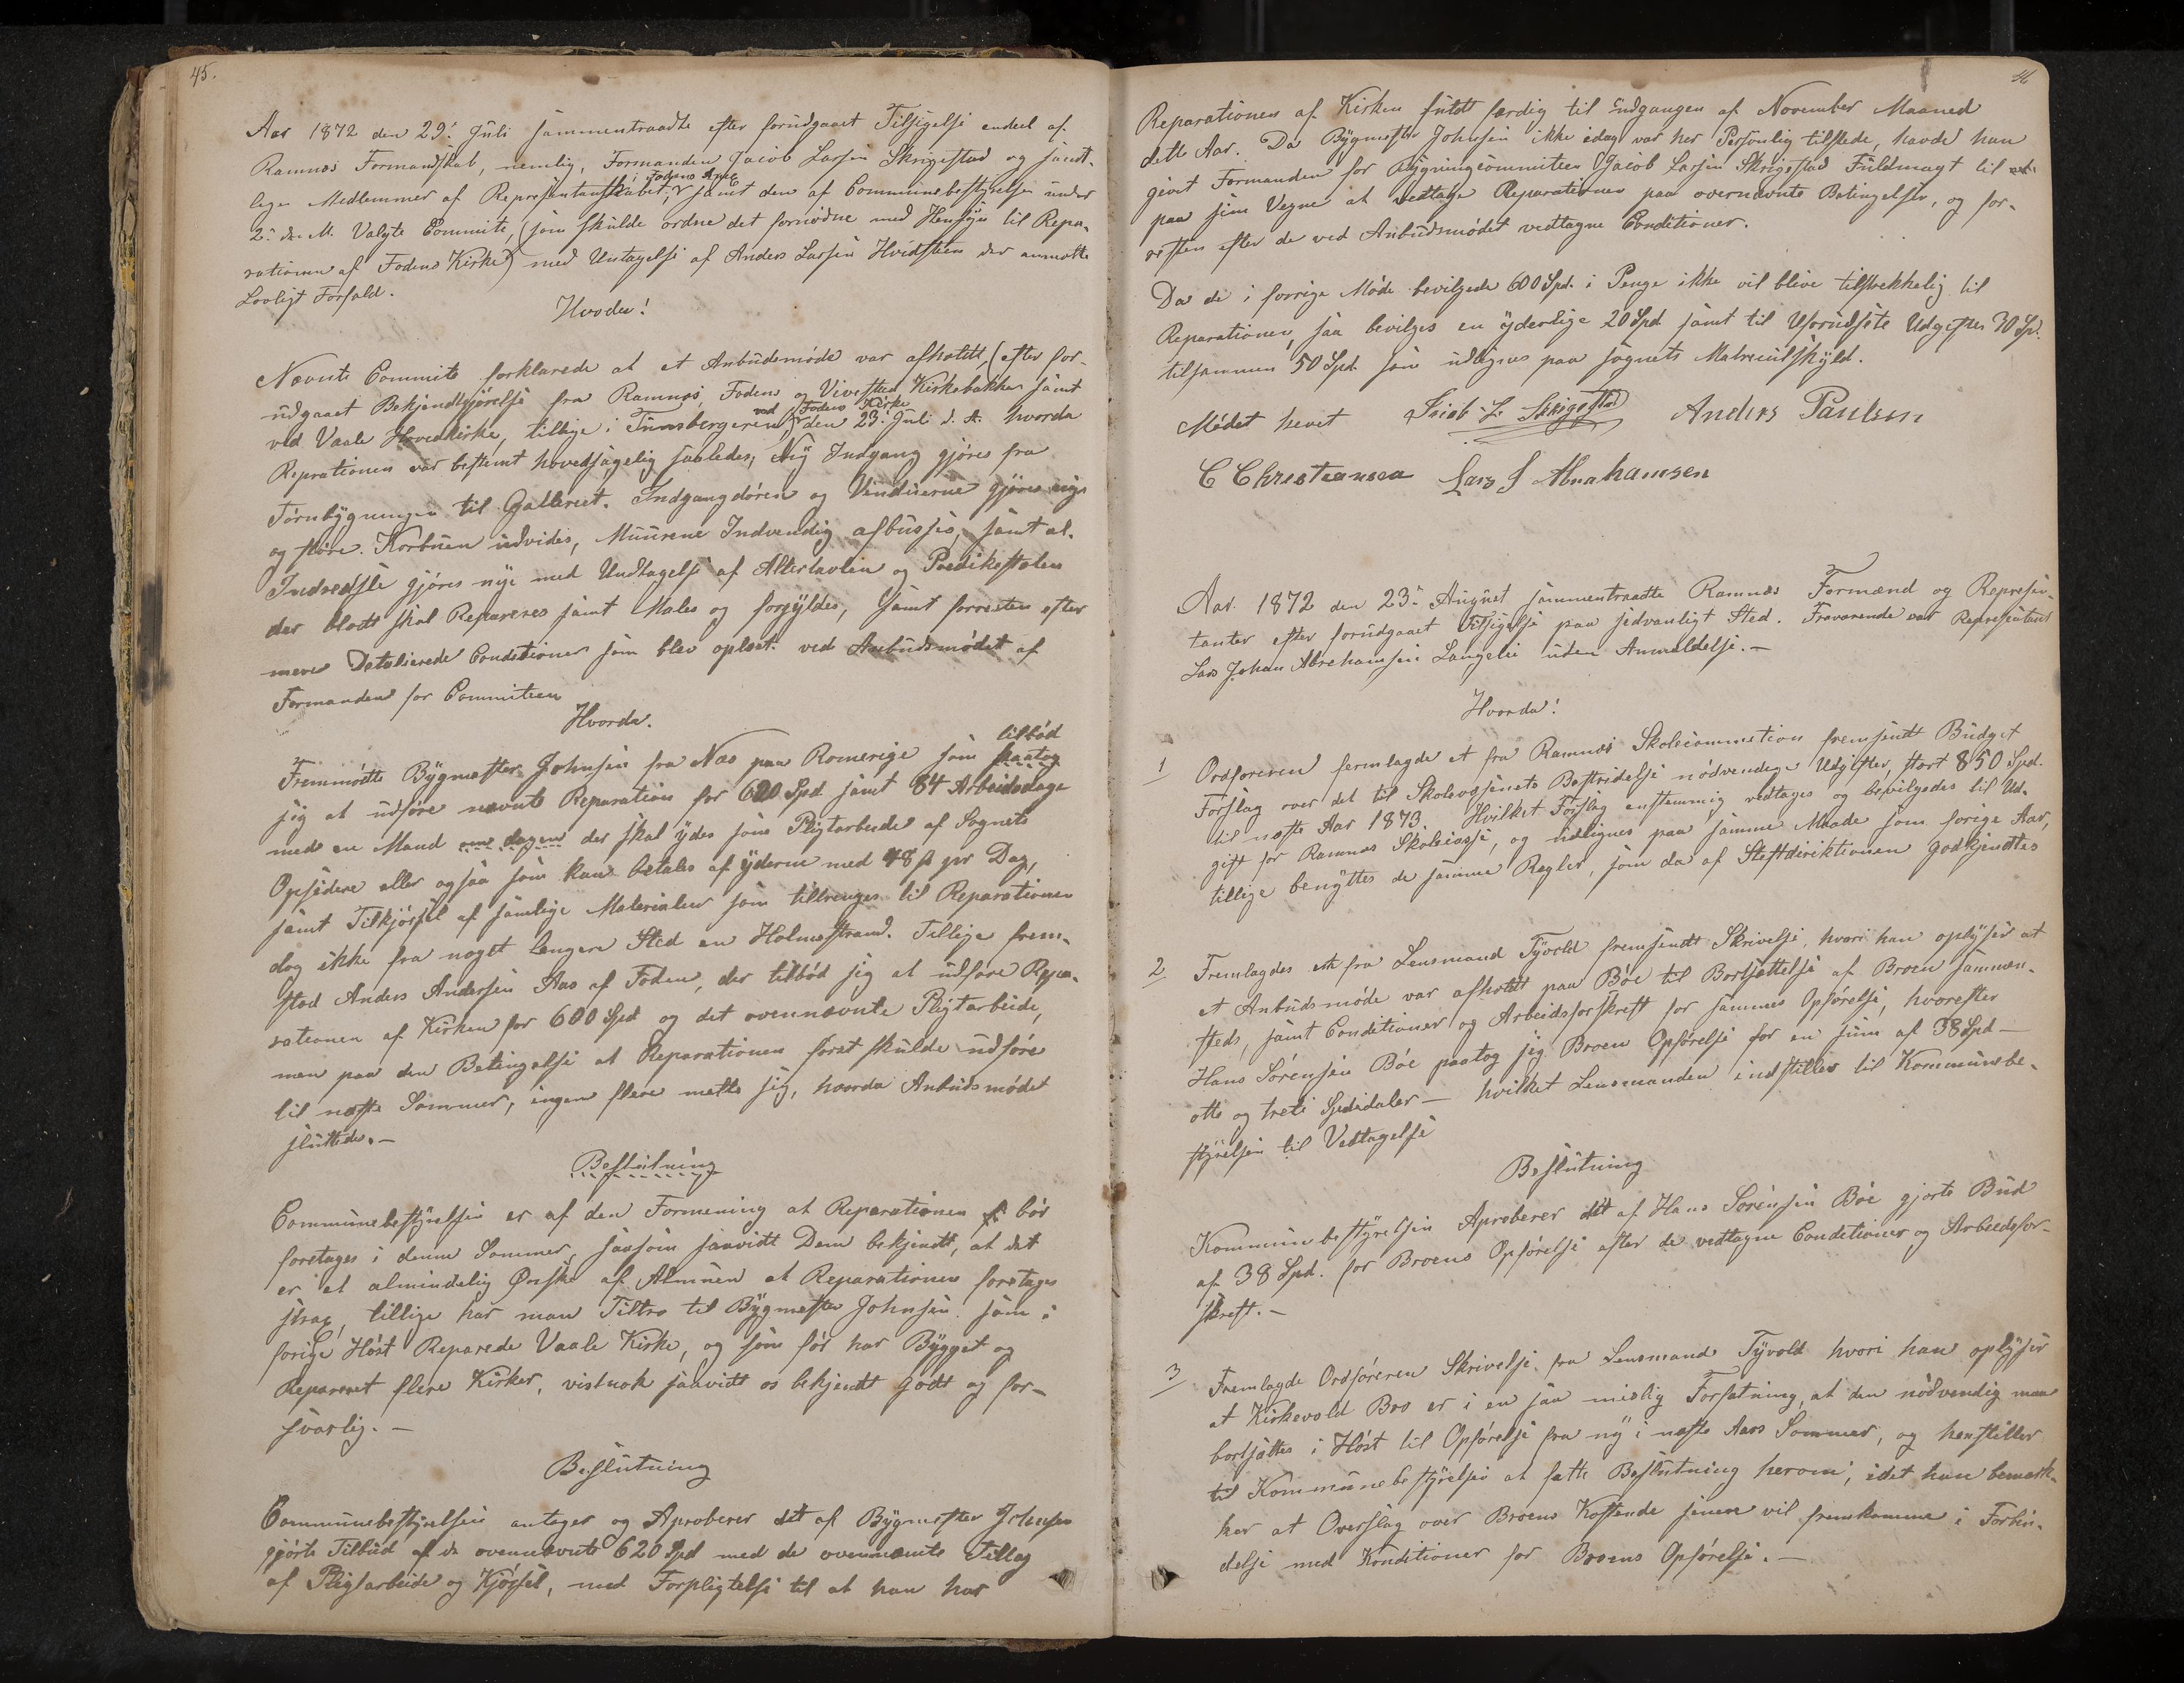 45.
Aar 1872 den 29: Juli sammentraadte efter forudgaaet Tilsigelse endeel af
Ramnæs Formandskab, nemlig, Formanden Jacob Larsen Skrigestad og samt-
lige Medlemmer af Repræsentantskabet, i Fodens Anex samt den af Communebestyrelsen under
2: ds. M. Valgte Committe, (som skulde ordne det fornødne med Hensyn til Repa-
rationen af Fodens Kirke) med Untagelse af Anders Larsen Hvidsteen der anmeldte
Lovligt Forfald.
Hvorda!
Nævnte Committe forklarede at et Anbudsmøde var afholdt, (efter for-
udgaaet Bekjendtgjørelse fra Ramnæs, Fodens og Vivestad Kirkebakker samt
ved Vaale Hovedkirke, tillige i Tunsbergeren) ved Fodens Kirke den 23: Juli d. A. hvorda
Reprationen var bestemt hovedsagelig saaledes; Ny Indgang gjøres fra
Tornbygningen til Galleriet. Indgangdøren og Vinduerne gjøres nye
og større. Korbuen udvides, Muurene Indvendig afbusses, samt al.
Indredsle gjøres nye med Undtagelse af Altertavlen og Prædikestolen
der blodt skal Repareres samt Males og forgyldes, samt forresten efter
mere Detalierede Conditioner som blev oplæst ved Anbudsmødet af
Formanden for Committeen
Hvorda.
Fremmødte Bygmester Johnsen fra Næs paa Romerige som paatog tilbød
sig at udføre nævnte Reparation for 620 Spd samt 84 Arbeidsdage
med en Mand om dagen der skal ydes som Pligtarbeide af Sognets
Opsidere eller ogsaa som kan betales af yderne med 48 ß pr Dag,
samt Tilkjørsel af samlige Materialier som tiltrenges til Reparationen
dog ikke fra noget længere Sted en Holmestrand. Tillige frem-
stod Anders Andersen Aas af Foden, der tilbød sig at udføre Repa-
rationen af Kirken for 600 Spd og det ovennævnte Pligtarbeide,
men paa den Betingelse at Reparationen først skulde udføres
til næste Sommer, ingen flere meldte sig, hvorda Anbudsmødet
sluttedes.—
Beslutning
Communebestyrelsen er af den Formening at Reparationen bør
foretages i denne Sommer, saasom saavidt Dem bekjendt, at det
er et almindelig Ønske af Almuen at Reparationen foretages
strax, tillige har man Tiltro til Bygmester Johnsen som i
forige Høst Reparede Vaale Kirke, og som før har Bygget og
Repareret flere Kirker, vistnok saavidt os bekjendt godt og for-
svarlig.—
Beslutning
Communebestyrelsen antager og Aproberer det af Bygmester Johnsen
gjorte Tilbud af de ovennævnte 620 Spd med de ovennævnte Tillæg
af Pligtarbeide og Kjørsel, med Forpligtelse til at han har
46
Reparationen af Kirken fuldt færdig til udgangen af November Maaned
dette Aar. Da Bygmester Johnsen ikke idag var her Personlig tilstede, havde han
givet Formanden for Bygningscommitteen Jacob Larsen Skrigestad Fuldmagt til
paa sine Vegne at vedtage Reparationen paa overnævnte Betingelser, og for-
resten efter de ved Anbudsmødet vedtagne Conditioner.
Da de i forrige Møde bevilgede 600 Spd. i Penge ikke vil blive tilstrekkelig til
Reparationen, saa bevilges en yderlige 20 Spd samt til Uforudsete Udgifter 30 Sp.
tilsammen 50 Spd. som udlignes paa sognets Matreculskyld.
Mødet hevet Jacob L Skrigestad Anders Paulsen
C Christiansen Lars J Abrahamsen
Aar 1872 den 23: August sammentraadte Ramnæs Formænd og Represen-
tanter efter forudgaaet Tilsigelse paa sedvanligt Sted. Fraværende var Representant
Lars Johan Abrahamsen Langelie uden Anmeldelse.—
Hvorda!
1 Ordføreren fermlagde et fra Ramnæs Skolecommetion fremsendt Budget
Forslag over det til Skolevæsenets Bestridelse nødvendige Udgifter, stort 850 Spd.
til næste Aar 1873. Hvilket Forslag enstemmig vedtages og bevilgedes til Ud-
gift for Ramnæs Skolecasse, og udlignes paa samme Maade som forige Aar,
tillige benyttes de samme Regler, som da af Steftdirektionen godkjendtes
2 Fremlagdes et fra Lensmand Tyvold fremsendt Skrivelse, hvori han oplyser at
et Anbudsmøde var afholdt paa Bøe til Bortsættelse af Broen sammen-
steds, samt Conditioner og Arbeidsforskreft for sammes Opførelse, hvorefter
Hans Sørensen Bøe paatog sig Broen Opførelse for en sum af 38 Spd —
otte og treti Spesidaler — hvilket Lensmanden indstiller til Kommunebe-
styrelsen til Vedtagelse
Beslutning
Kommunebestyrelsen Aproberer det af Hans Sørensen Bøe gjorte Bud
af 38 Spd. for Broens Opførelse efter de vedtagne Conditioner og Arbeidsfor-
skreft.—
3 Fremlagde Ordføreren Skrivelse fra Lensmand Tyvold hvori han oplyser
at Kirkevold Bro er i en saa mislig Forfatning, at den nødvendig maa
bortsættes i Høst til Opførelse fra ny i næste Aars Sommer, og henstiller
til Kommunebestyrelsen at fatte Beslutning herom, idet han bemær-
ker at Overslag over Broens Kostende senere vil fremkomme i Forbin-
delse med Konditioner for Broens Opførelse.—